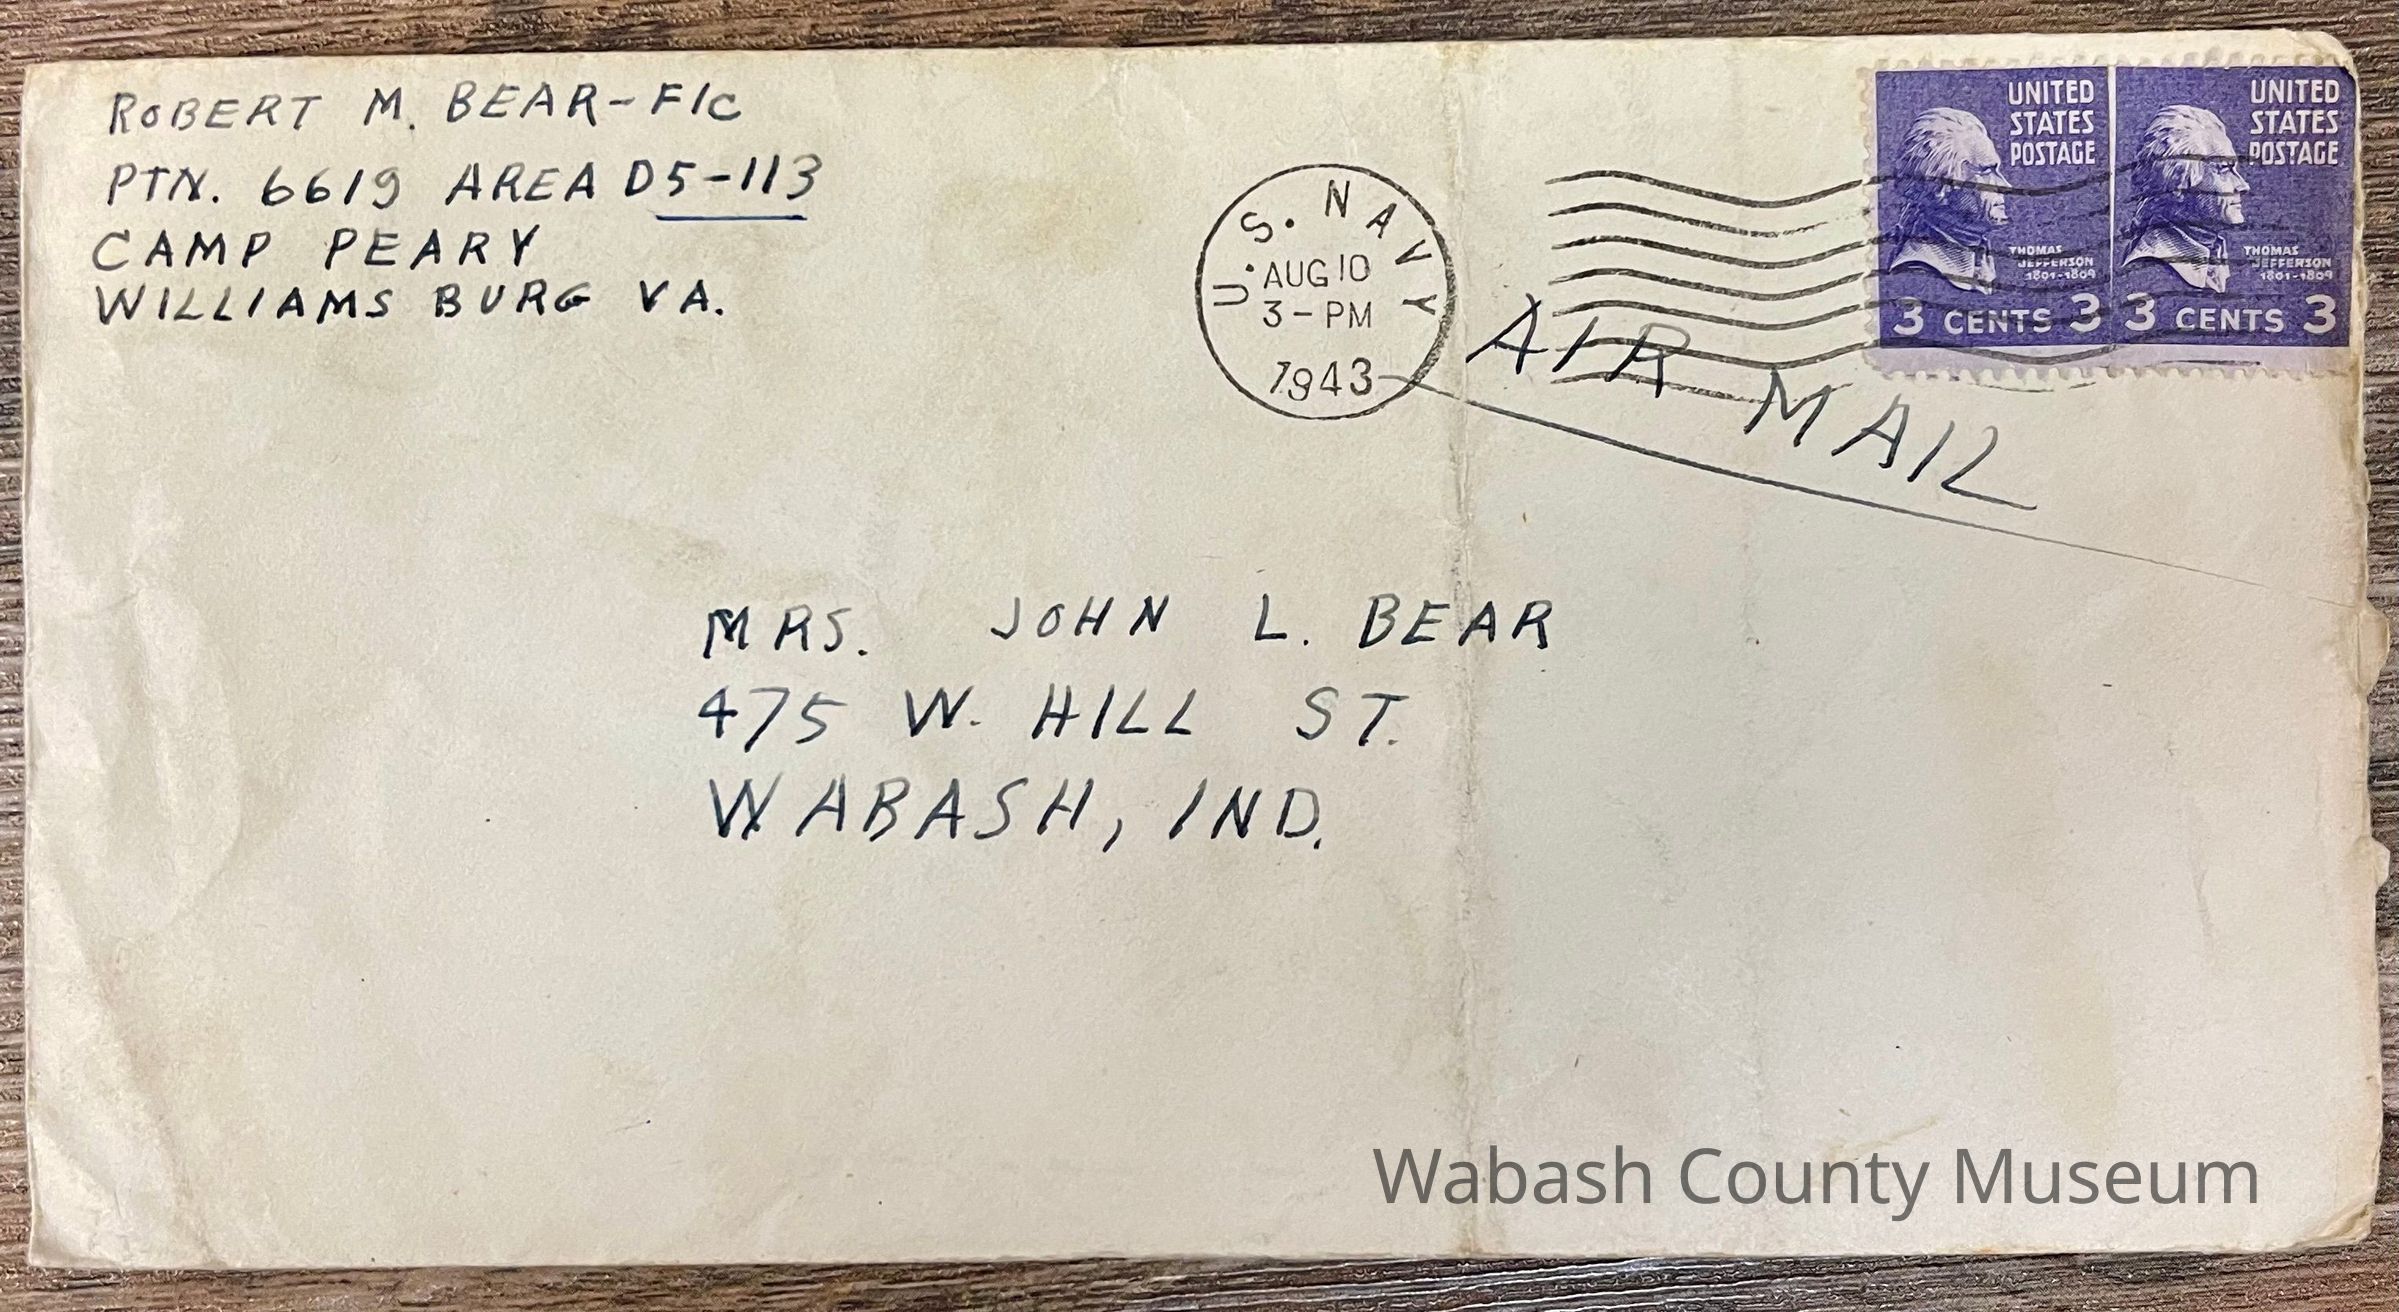 ROBERT M. BEAR-F1C
PTN. 6619 AREA D5-113
CAMP PEARY
WILLIAMS BURG VA.
U.S. NAVY
AUG 10
3-PM
1943
UNITED
STATES
POSTAGE
THOMAS
JEFFERSON
1801-1809
3 CENTS 3
UNITED
STATES
POSTAGE
THOMAS
JEFFERSON
1801-1809
3 CENTS 3
AIR MAIL
MRS. JOHN L. BEAR
475 W. HILL ST.
WABASH, IND.
Wabash County Museum